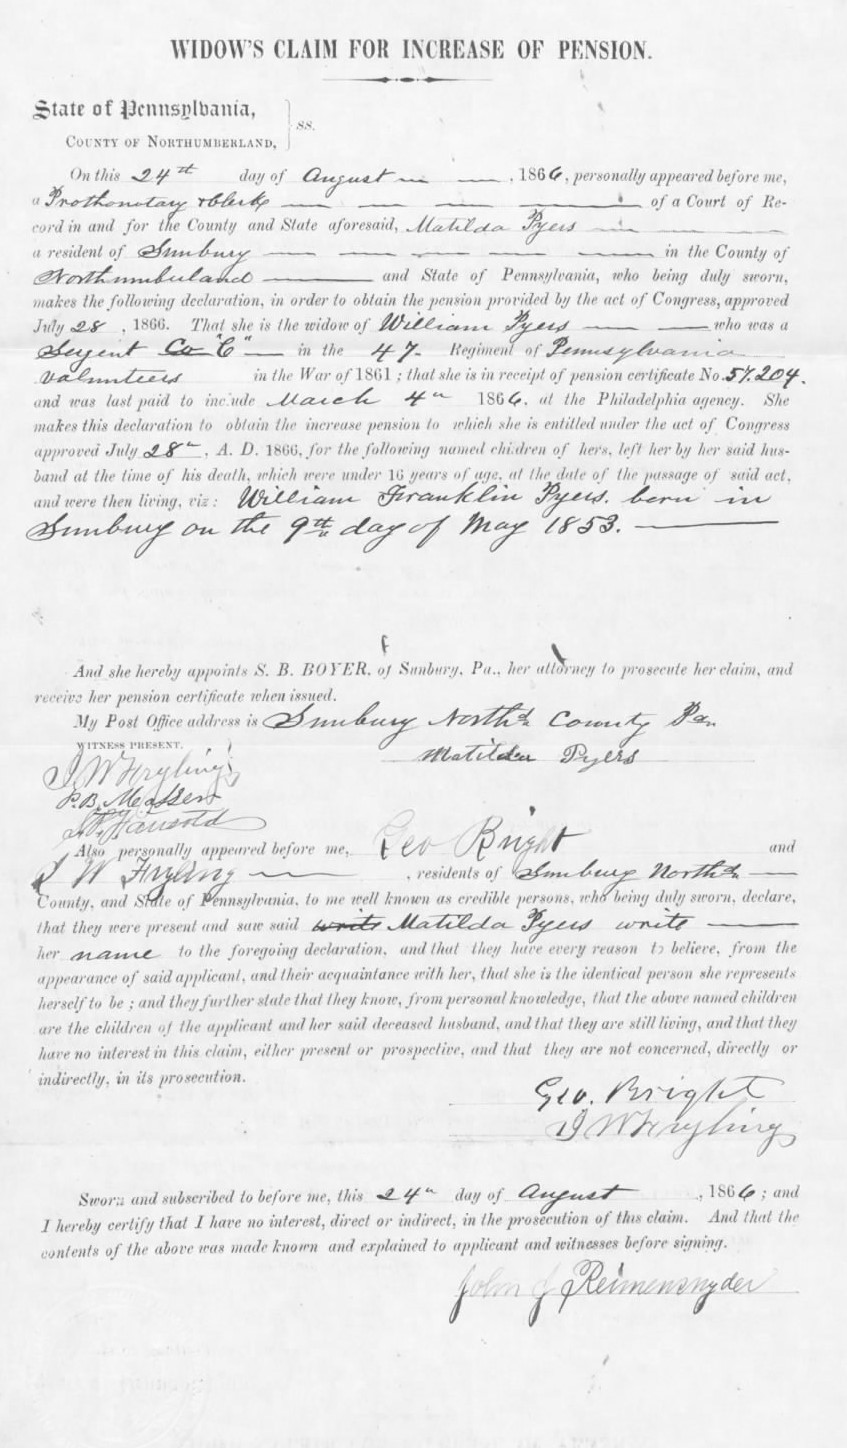 WIDOW'S CLAIM FOR INCREASE OF PENSION.
State of Pennsylvania,
ss.
COUNTY OF NORTHUMBERLAND,
On this 24th day of August, 1866, personally appeared before me,
a Prothonotary & Clerk of a Court of Re-
cord in and for the County and State aforesaid, Matilda Pyers
a resident of Sunbury in the County of
Northumberland and State of Pennsylvania, who being duly sworn,
makes the following declaration, in order to obtain the pension provided by the act of Congress, approved
July 28, 1866. That she is the widow of William Pyers who was a
Sergent Co "C" in the 47. Regiment of Pennsylvania
Volunteers in the War of 1861; that she is in receipt of pension certificate No. 57.204.
and was last paid to include March 4th 1866, at the Philadelphia agency. She
makes this declaration to obtain the increase pension to which she is entitled under the act of Congress
approved July 28th, A. D. 1866, for the following named children of hers, left her by her said hus-
band at the time of his death, which were under 16 years of age, at the date of the passage of said act,
and were then living, viz: William Franklin Pyers, born in
Sunbury on the 9th day of May 1853.
And she hereby appoints S. B. BOYER, of Sunbury, Pa., her attorney to prosecute her claim, and
receive her pension certificate when issued.
My Post Office address is Sunbury Northd County Pa
WITNESS PRESENT.
Matilda Pyers
J W Fryling
P. B. Masser
Also personally appeared before me, Geo Bright and
J W Fryling, residents of Sunbury Northd
County, and State of Pennsylvania, to me well known as credible persons, who being duly sworn, declare,
that they were present and saw said write Matilda Pyers write
her name to the foregoing declaration, and that they have every reason to believe, from the
appearance of said applicant, and their acquaintance with her, that she is the identical person she represents
herself to be; and they further state that they know, from personal knowledge, that the above named children
are the children of the applicant and her said deceased husband, and that they are still living, and that they
have no interest in this claim, either present or prospective, and that they are not concerned, directly or
indirectly, in its prosecution.
Geo. Bright
J W Fryling
Sworn and subscribed to before me, this 24th day of August, 1866; and
I hereby certify that I have no interest, direct or indirect, in the prosecution of this claim. And that the
contents of the above was made known and explained to applicant and witnesses before signing.
John J Reimensnyder